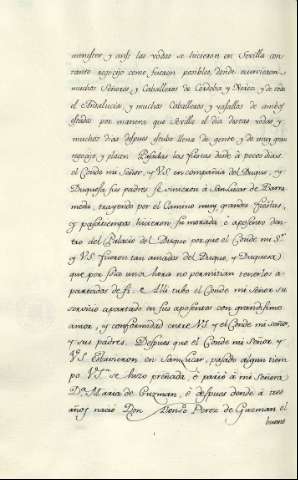 menester y assi las vodas se hicieron en Sevilla con
tanto regocijo como fueron posibles, donde concurrieron
muchos Señores, y Caballeros de Cordoba y Xerez, y de toda
el Andalucia, y muchos Caballeros y vasallos de ambos
estados por manera que Sevilla el dia destas vodas y
muchos dias despues estubo llena de gente y de muy gran
regocijo, y placer. Pasadas las fiestas dende á pocos dias
el Conde mi Señor, y V.S. en compañia del Duque, y
Duquesa, sus padres se vinieron á SanLucar de Barra
meda, trayendo por el Camino muy grandes fiestas,
y pasatiempos hicieron su morada, ó aposento den
tro del Palacio del Duque por que el Conde mi S.r
y V.S. fueron tan amados del Duque, y Duquesa
que por sola una hora no permitian tenerlos a
partados de si. Alli tubo el Conde mi señor su
servicio apartado en sus aposentos con grandisimo
amor, y conformidad entre V.S. y el Conde mi señor,
y sus padres. Despues que el Conde mi Señor y
V.S. Estuvieron en SanLucar, pasado algun tiem
po V.S. se hizo preñada, ó parió á mi Señora
D.a Maria de Guzman, ó despues dende á tres
años nació Don Alonso Perez de Guzman el
bueno